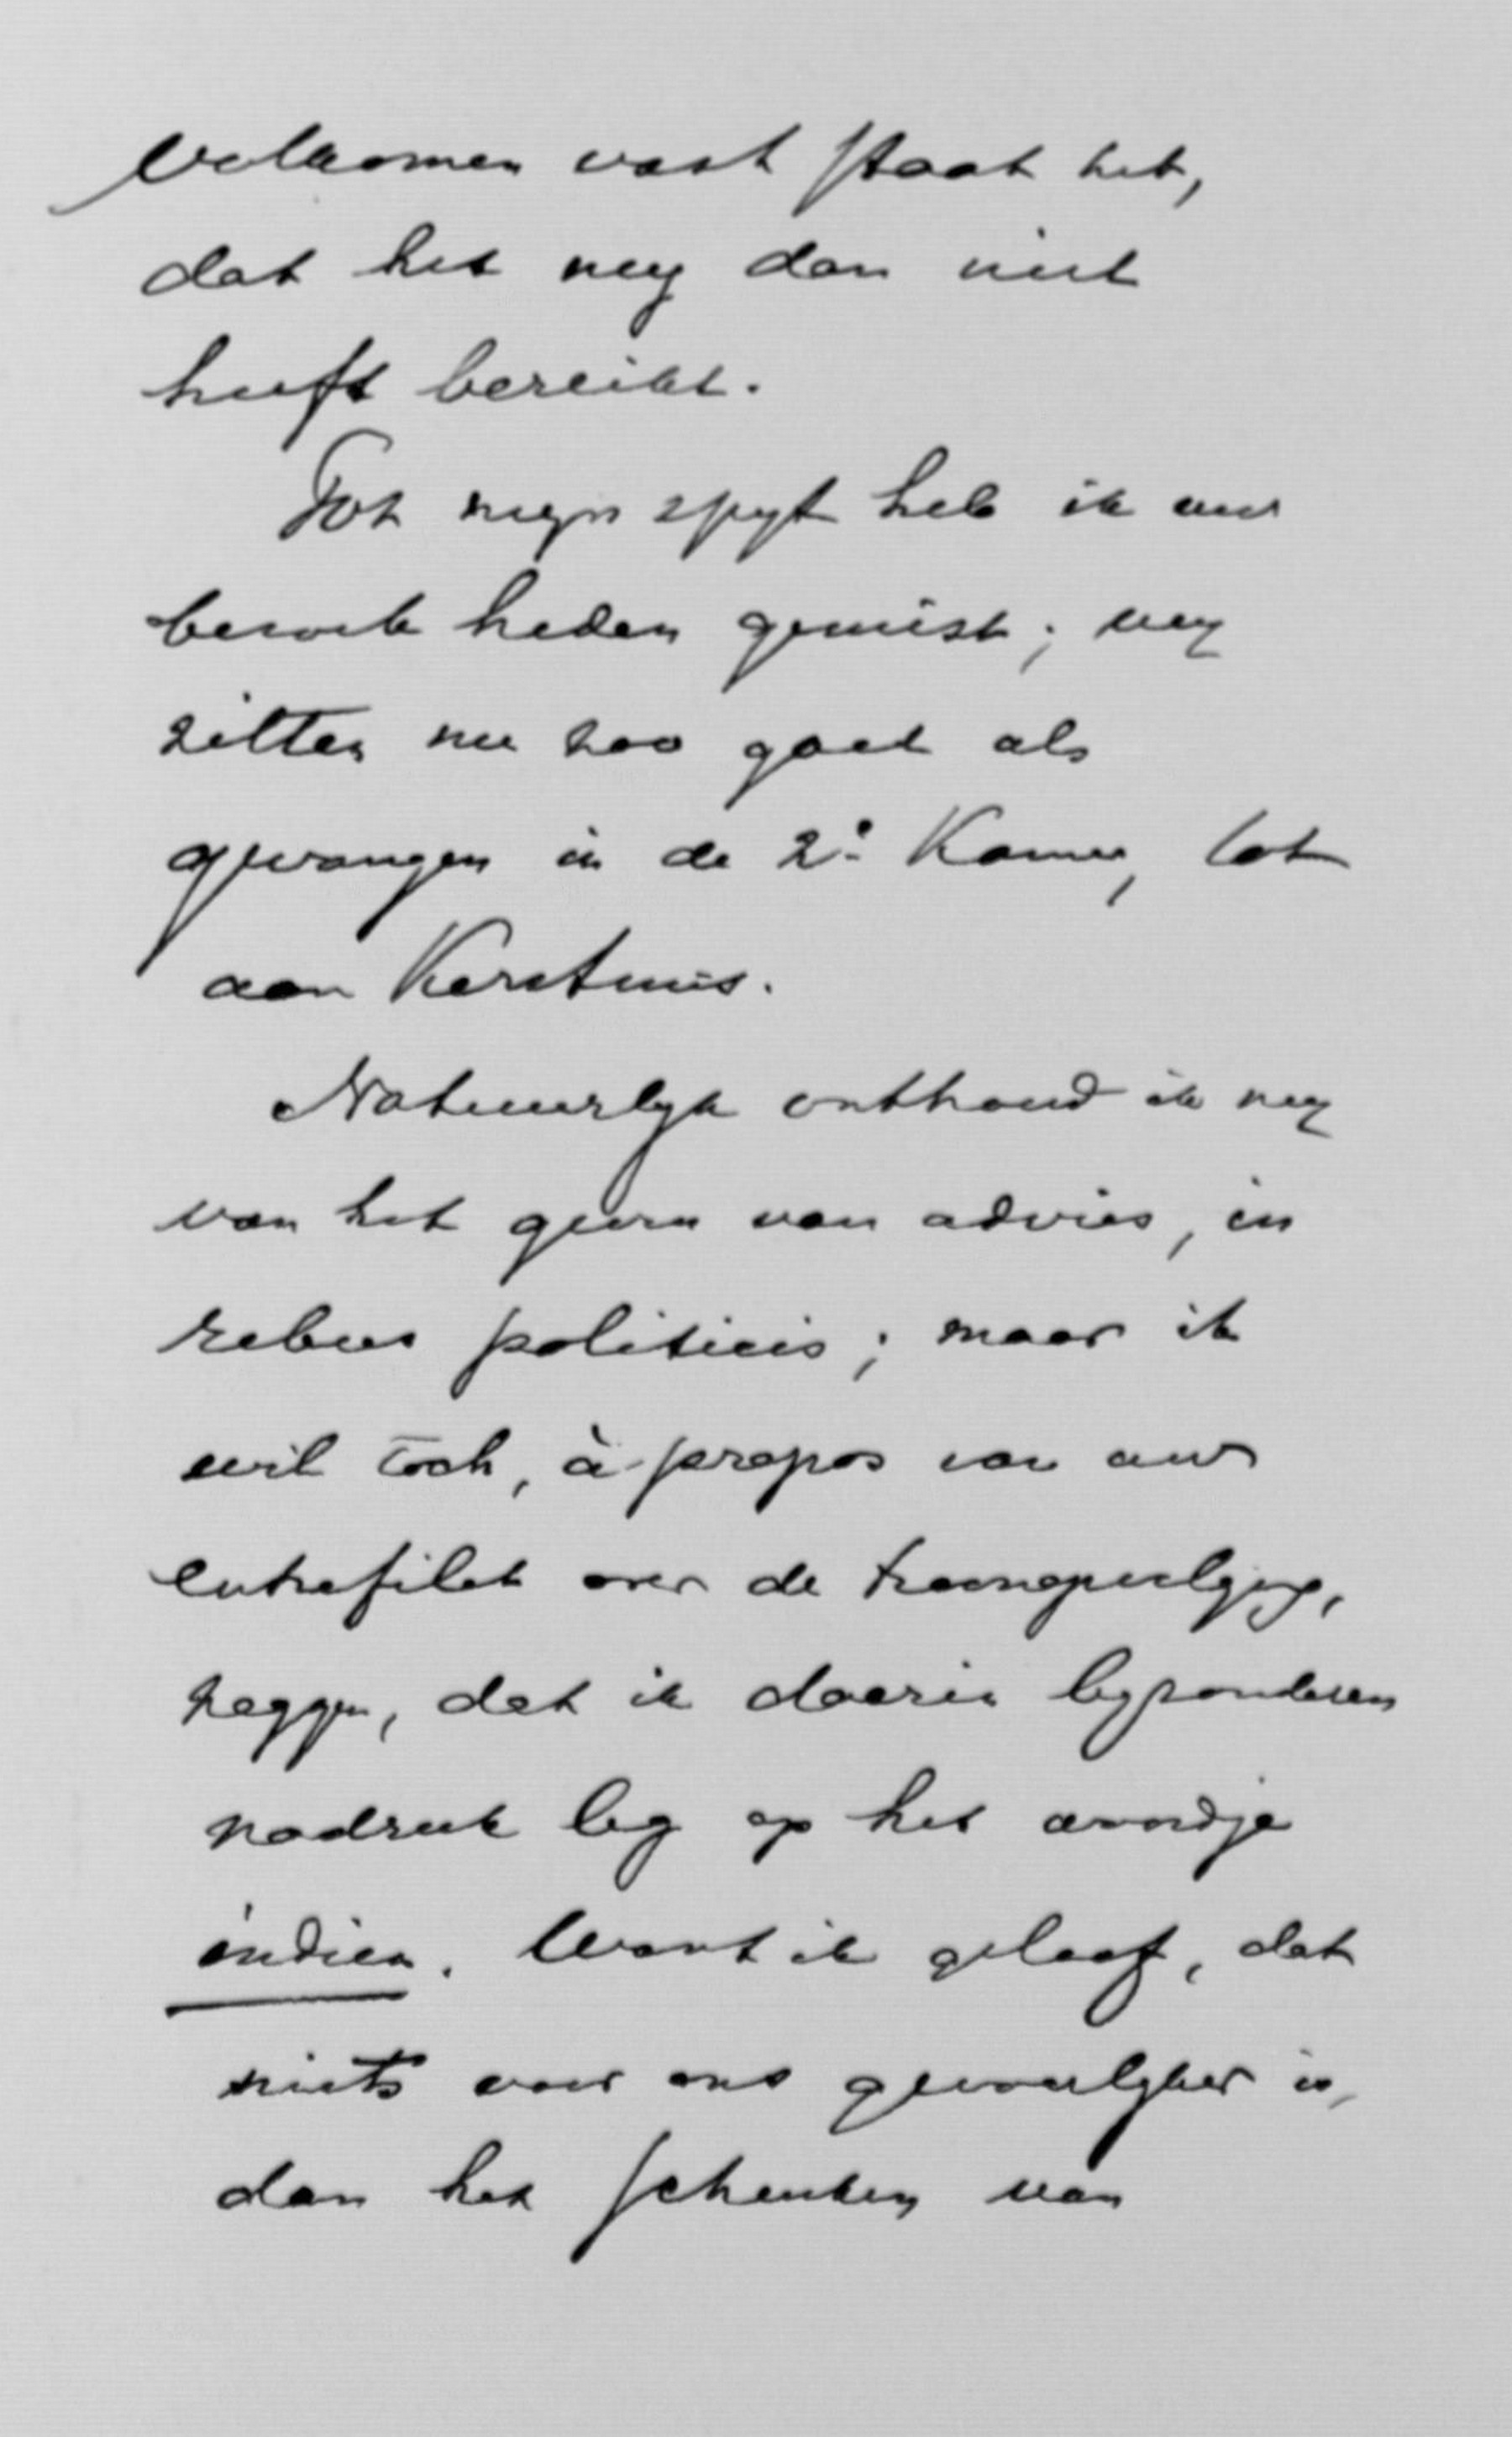 Volkomen vast staat het,
dat het my dan niet
heeft bereikt.
Tot myn spyt heb ik uw
bezoek heden gemist; wy
zitten nu zoo goed als
gevangen in de 2e Kamer, tot
aan Kerstmis.
Natuurlyk onthoud ik my
van het geven van advies, in
rebus politicis; maar ik
wil toch, à-propos van uw
entrefilet over de troonopvolging,
zeggen, dat ik daarin byzonderen
nadruk leg op het woordje
indien. Want ik geloof, dat
niets voor ons gevaarlyker is,
dan het schenken van